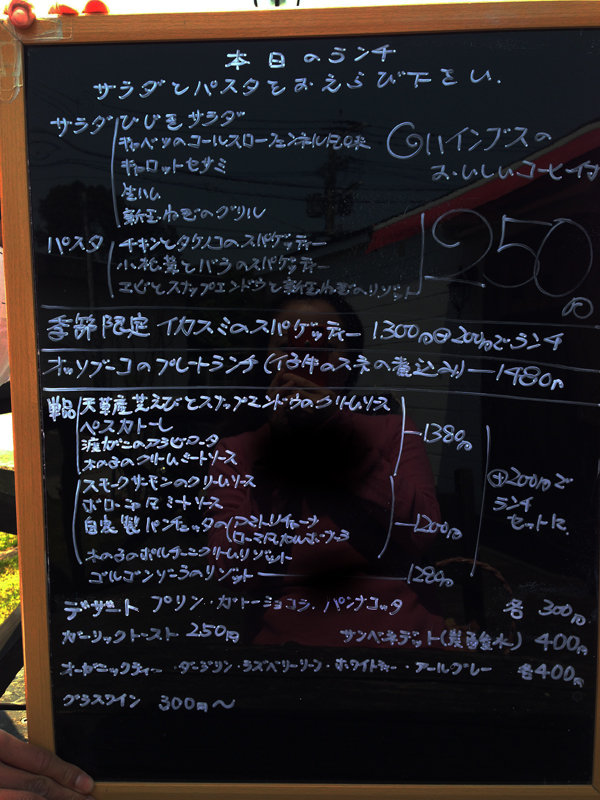 本日のランチ
サラダとパスタをおえらび下さい.
サラダ ひじきサラダ
キャベツのコールスローフェンネル風味
キャロットセサミ
生ハム
新玉ねぎのグリル
◎ハインブスの
おいしいコーヒー付
パスタ チキンとタケノコのスパゲッティー
小松菜とバラのスパゲッティー
エビとスナップエンドウと新玉ねぎのリゾット
1250円
季節限定 イカスミのスパゲッティー 1300円 ⊕200円でランチ
オッソブーコのプレートランチ(イ子牛のスネの煮込み)ー1480円
単品 天草産芝えびとスナップエンドウのクリームソース
ペスカトーレ
渡りがにのアラビアータ
木の子のクリームミートソース
ー1380円
スモークサーモンのクリームソース
ボローニャ風ミートソース
自家製パンチェッタの アマトリチャーナ
ローマ風カルボナーラ
木の子のポルチーニクリームリゾット
ー1200円
ゴルゴンゾーラのリゾットー1280円
⊕200円で
ランチ
セットに.
デザート プリン・ガトーショコラ・パンナコッタ 各 300円
ガーリックトースト 250円 サンベネデット(炭酸水) 400円
オーガニックティー・ダージリン・ラズベリーリーフ・ホワイトティー・アールグレー 各400円
グラスワイン 300円〜